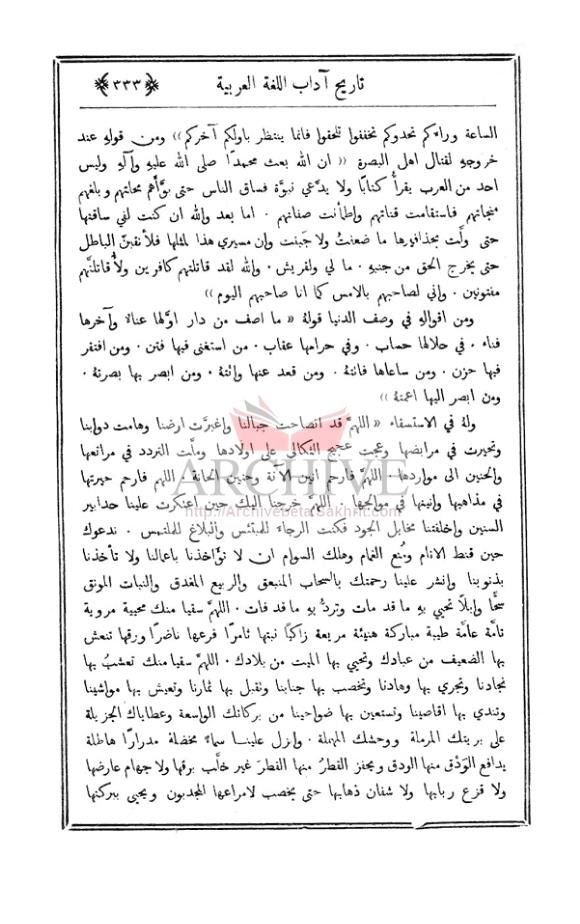 تاريخ آداب اللغة العربية ﴿٣٣٣﴾
الساعة وراءكم تحدوكم تخففوا تلحقوا فانما ينتظر باولكم آخركم)) ومن قولهِ عند
خروجهِ لقتال اهل البصرة ((ان الله بعث محمدًا صلى الله عليهِ وآلهِ وليس
احد من العرب يقرأُ كتابًا ولا يدَّعي نبوَّة فساق الناس حتى بوَّأَهم محلتهم وبلغهم
منجاتهم فاستقامت قناتهم وإطمأنت صفاتهم. اما بعد والله ان كنت لفي ساقتها
حتى ولَّت بحذافيرها ما ضعفتُ ولا جَبنت وإن مسيري هذا لمثلها فلأنقبنَّ الباطل
حتى يخرج الحق من جنبهِ. ما لي ولقريش. والله لقد قاتلتهم كافرين ولأُقاتلنَّهم
مفتونين. وإني لصاحبهم بالامس كما انا صاحبهم اليوم))
ومن اقوالهِ في وصف الدنيا قولهُ ((ما اصف من دار اوَّلها عناءٌ وآخرها
فناء. في حلالها حساب. وفي حرامها عقاب. من استغنى فيها فتن. ومن افتقر
فيها حزن. ومن ساعاها فاتتهُ. ومن قعد عنها وإتتهُ. ومن ابصر بها بصرتهُ.
ومن ابصر اليها اعمتهُ))
ولهُ في الاستسقاء ((اللهمَّ قد انصاحت جبالنا وإغبرَّت ارضنا وهامت دوابنا
وتحيرت في مرابضها وعجت عجيج الثكالى على اولادها وملَّت التردد في مراتعها
والحنين الى مواردها. اللهمَّ فارحم انين الآنة وحنين الحانة. اللهم فارحم حيرتها
في مذاهبها وإنينها في موالجها. اللهمَّ خرجنا اليك حين اعتكرت علينا حدابير
السنين وإخلفتنا مخايل الجود فكنت الرجاءَ للمبتئس والبلاغ للملتمس. ندعوك
حين قنط الانام ومُنع الغمام وهلك السوام ان لا تؤَاخذنا باعمالنا ولا تأخذنا
بذنوبنا وإنشر علينا رحمتك بالسحاب المنبعق والربيع المغدق والنبات المونق
سحًّا وإبلاً تحيي بهِ ما قد مات وتردُّ بهِ ما قد فات. اللهمَّ سقيا منك محيية مروية
تامَّة عامَّة طيبة مباركة هنيئة مريعة زاكيًا نبتها ثامرًا فرعها ناضرًا ورقها تنعش
بها الضعيف من عبادك وتحيي بها الميت من بلادك. اللهمَّ سقيا منك تعشبُ بها
نجادنا وتجري بها وهادنا وتخصب بها جنابنا وتقبل بها ثمارنا وتعيش بها مواشينا
وتندي بها اقاصينا وتستعين بها ضواحينا من بركاتك الواسعة وعطاياك الجزيلة
على بريتك المرملة ووحشك المهملة. وإنزل علينا سماءً مخضلة مدرارًا هاطلة
يدافع الوَدْق منها الودق ويحفز القطرُ منها القطرَ غير خلَّب برقها ولا جهام عارضها
ولا قزع ربابها ولا شفان ذهابها حتى يخصب لامراعها المجدبون ويحيى ببركتها
ARCHIVE
http://Archivebeta.Sakhrit.com